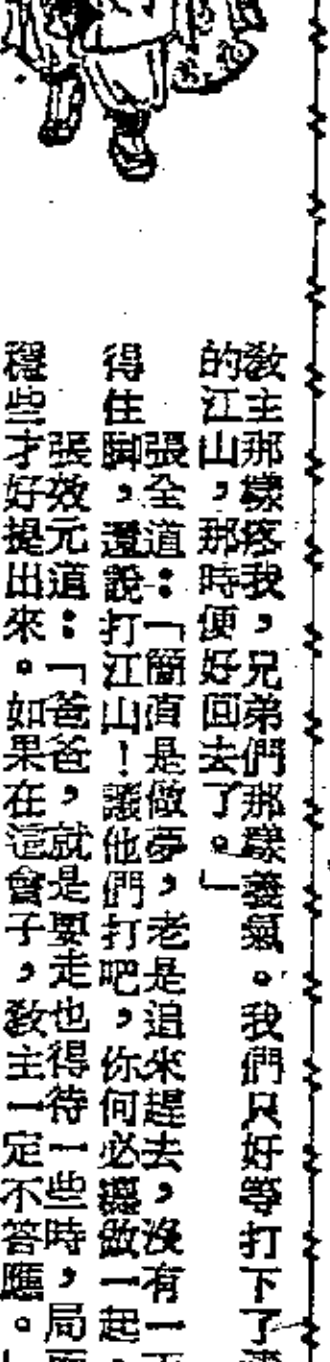 教主那樣疼我，兄弟們那樣義氣。我們只好等打下了
的江山，那時便好回去了。」
張全道：「簡直是做夢，老是追來趕去，沒有一
得住脚，還說打江山！讓他們打吧，你何必攪做一起，
張效元道：「爸爸，就是要走也得待一些時，局
穩些才好提出來。如果在這會子，教主一定不答應。」